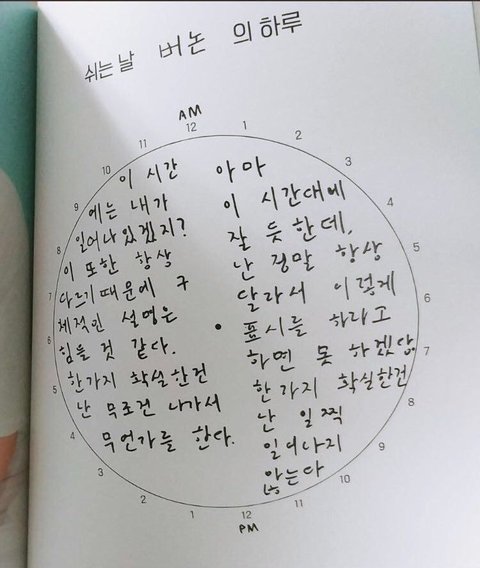 쉬는 날 버논 의 하루
AM
12
1
2
3
4
5
6
7
8
9
10
11
12
PM
1
2
3
4
5
6
7
8
9
10
11
아마
이 시간대에
잘 듯한데,
난 정말 항상
달라서 이렇게
표시를 하라고
하면 못 하겠답.
한가지 확실한건
난 일찍
일어나지
않는다
이 시간
에는 내가
일어나있겠지?
이 또한 항상
다르기때문에 구
체적인 설명은
힘들 것 같다.
한가지 확실한건
난 무조건 나가서
무언가를 한다.